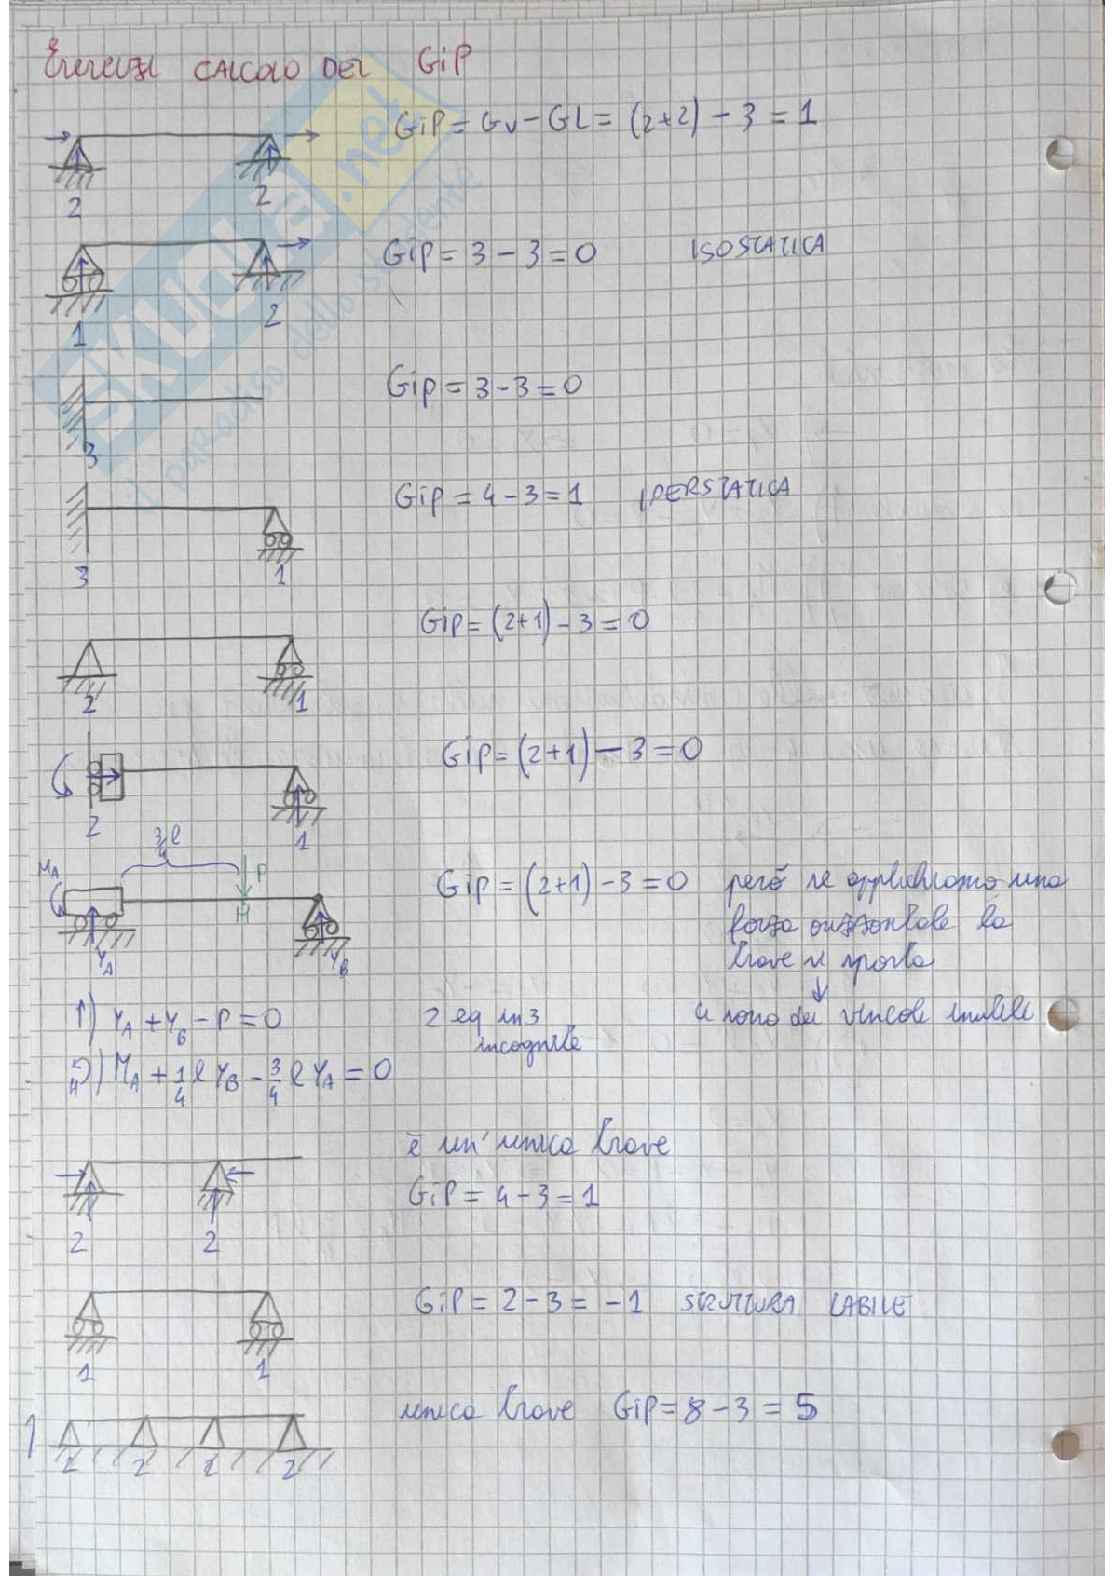 Esercizi CALCOLO DEL GiP
GiP = Gv - GL = (2+2) - 3 = 1
2 2
Gip = 3 - 3 = 0 ISOSTATICA
1 2
Gip = 3 - 3 = 0
3
Gip = 4 - 3 = 1 IPERSTATICA
3 1
Gip = (2+1) - 3 = 0
2 1
Gip = (2+1) - 3 = 0
2 1
3/4 l
MA P
Gip = (2+1) - 3 = 0 però se applichiamo una
forza orizzontale la
trave si sposta
H
YA YB
↑) YA + YB - P = 0 2 eq in 3 ci sono dei vincoli inutili
incognite
H) MA + 1/4 l YB - 3/4 l YA = 0
è un' unica trave
GiP = 4 - 3 = 1
2 2
GiP = 2 - 3 = -1 STRUTTURA LABILE
1 1
unica trave GiP = 8 - 3 = 5
2 2 2 2
SKUOLA.net
il paradiso dello studente